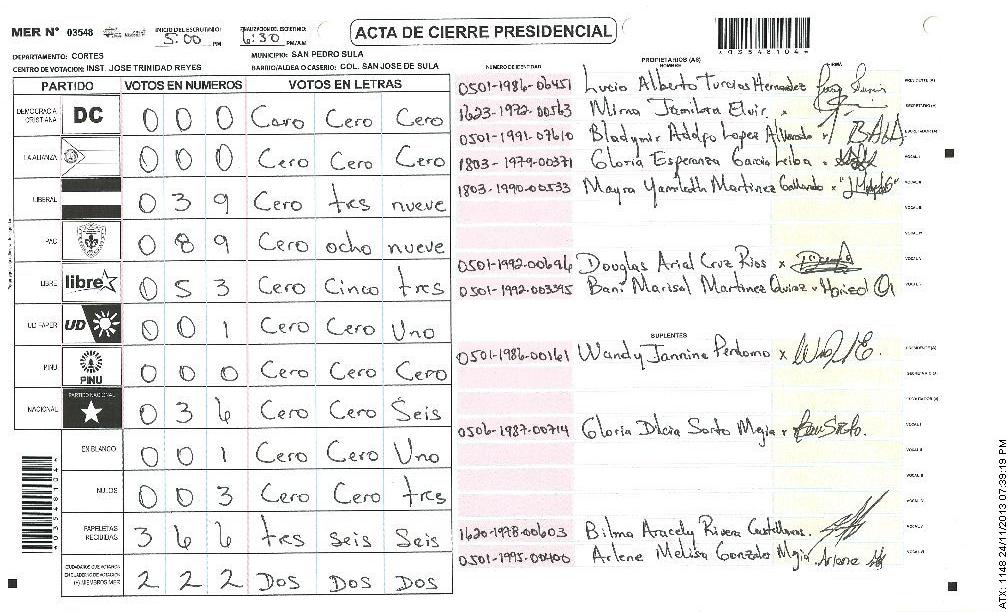 MER Nº 03548 INICIO DEL ESCRUTINIO: 5:00 PM FINALIZACION DEL ESCRUTINIO: 6:30 PM/AM
ACTA DE CIERRE PRESIDENCIAL
DEPARTAMENTO: CORTES MUNICIPIO: SAN PEDRO SULA
CENTRO DE VOTACION: INST. JOSE TRINIDAD REYES BARRIO/ALDEA O CASERIO: COL. SAN JOSE DE SULA
PARTIDO VOTOS EN NUMEROS VOTOS EN LETRAS
DEMOCRACIA CRISTIANA DC 0 0 0 Cero Cero Cero
LA ALIANZA 0 0 0 Cero Cero Cero
LIBERAL 0 3 9 Cero tres nueve
PAC 0 8 9 Cero ocho nueve
LIBRE libre 0 5 3 Cero Cinco tres
UD FAPER UD 0 0 1 Cero Cero Uno
PINU PINU 0 0 0 Cero Cero Cero
NACIONAL PARTIDO NACIONAL 0 3 6 Cero Cero Seis
EN BLANCO 0 0 1 Cero Cero Uno
NULOS 0 0 3 Cero Cero tres
PAPELETAS RECIBIDAS 3 6 6 tres seis Seis
CIUDADANOS QUE VOTARON EN CUADERNO DE VOTACION (+) MIEMBROS MER 2 2 2 DOS DOS DOS
PROPIETARIOS (AS)
NUMERO DE IDENTIDAD NOMBRE FIRMA
0501-1986-06451 Lucio Alberto Turcios Hernandez
1623-1972-00563 Mirna Jamileth Elvir
0501-1991-07610 Bladymir Adolfo Lopez Alvarado
1803-1979-00371 Gloria Esperanza Garcia Leiba
1803-1990-00533 Mayra Yamileth Martinez Gallardo
0501-1992-00696 Douglas Arial Cruz Rios
0501-1992-003395 Bani Marisol Martinez Quiroz
SUPLENTES
0501-1986-00161 Wandy Jannine Perdomo
0506-1987-00714 Gloria Dilcia Sorto Mejia
1620-1978-00603 Bilma Aracely Rivera Castellanos
0501-1995-00400 Arlene Melisa Gonzales Mejia
ATX: 1148 24/11/2013 07:39:19 PM